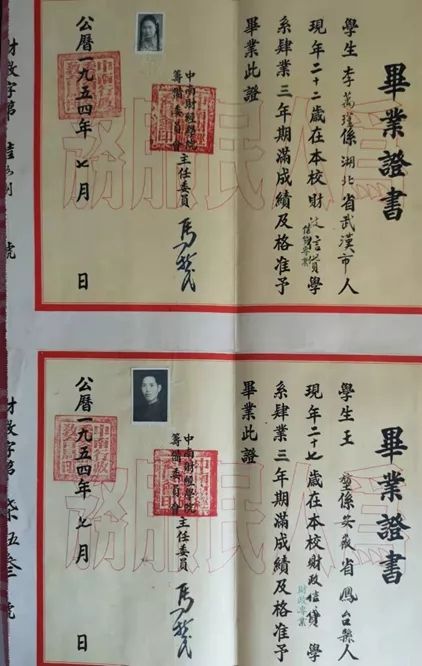 畢業證書
學生李萬瑾係湖北省武漢市人
現年二十二歲在本校財政信貸學
信貸專業
系肄業三年期滿成績及格准予
畢業此證
中南財經學院
籌備委員會
主任委員
公曆一九五四年七月 日
財教字第 號
為人民服務
畢業證書
學生王 係安徽省鳳台縣人
現年二十七歲在本校財政信貸學
財政專業
系肄業三年期滿成績及格准予
畢業此證
中南財經學院
籌備委員會
主任委員
公曆一九五四年七月 日
財教字第柒伍叁號
為人民服務